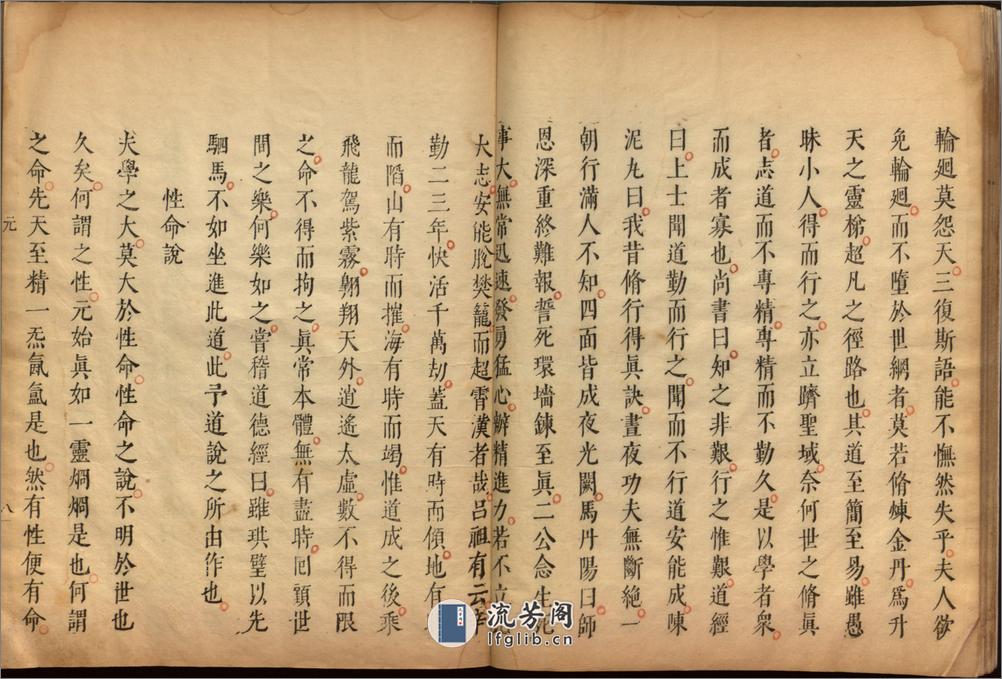 輪廻莫怨天三復斯語能不憮然失乎夫人欲
免輪廻而不墮於世網者莫若脩煉金丹爲升
天之靈梯超凡之徑路也其道至簡至易雖愚
昧小人得而行之亦立躋聖域奈何世之脩眞
者志道而不專精專精而不勤久是以學者衆
而成者寡也尚書曰知之非艱行之惟艱道經
曰上士聞道勤而行之聞而不行道安能成陳
泥丸曰我昔脩行得眞訣晝夜功夫無斷絶一
朝行滿人不知四面皆成夜光闕馬丹陽曰師
恩深重終難報誓死環墻鍊至眞二公念生死
事大無常迅速發勇猛心辦精進力若不立
大志安能脫樊籠而超霄漢者哉吕祖有云辛
勤二三年快活千萬劫蓋天有時而傾地有
而陷山有時而摧海有時而竭惟道成之後乘
飛龍駕紫霧翱翔天外逍遙太虛數不得而限
之命不得而拘之眞常本體無有盡時囘顧世
間之樂何樂如之嘗稽道德經曰雖珙璧以先
駟馬不如坐進此道此予道說之所由作也
性命說
夫學之大莫大於性命性命之說不明於世也
久矣何謂之性元始眞如一靈烱烱是也何謂
之命先天至精一炁氤氳是也然有性便有命
元
八
流芳阁
lfglib.cn